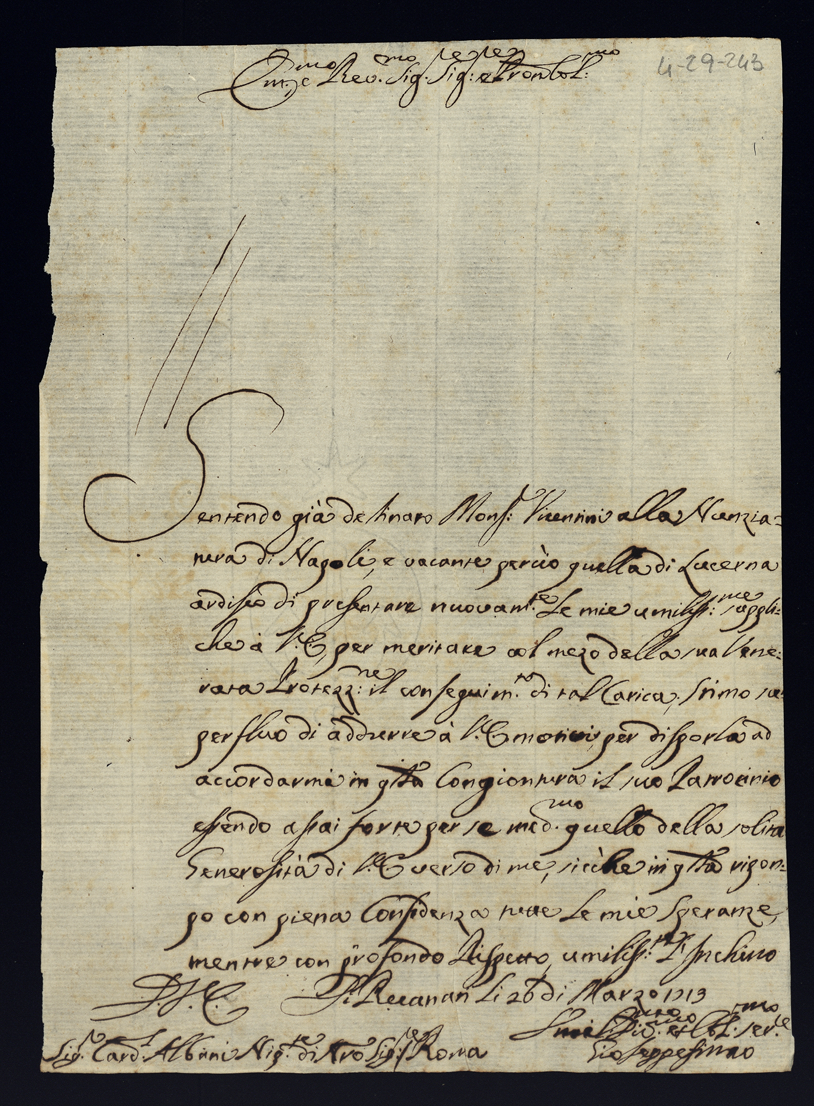 4-29-243
Em.mo e Rev.mo Sig.re Sig.re e Pron Col.mo
Sentendo già destinato Mons.r Vicentini alla Nunzia=
tura di Napoli, e vacante perciò quella di Lucerna
ardisco di presentare nuovam.te le mie umiliss.me suppli=
che à V.E. per meritare col mezo della sua Vene=
rata Protezz.ne il conseguim.to di tal Carica; Stimo su=
perfluo di addurre à V.E. motivi, per disporla ad
accordarmi in q.sta Congiontura il suo Patrocinio
essendo assai forte per se med.mo quello della solita
Generosità di V.E. verso di me, sicche in q.sta ripon=
go con piena Confidenza tutte le mie Speranze,
mentre con profondo Rispetto umiliss.te L'Inchino
D.V.E. Di Recanati Li 26 di Marzo 1713
Sig.r Card.l Albani Nip.te di N'ro Sig.re Roma
Um.mo Div.mo et Obl.mo ser.e